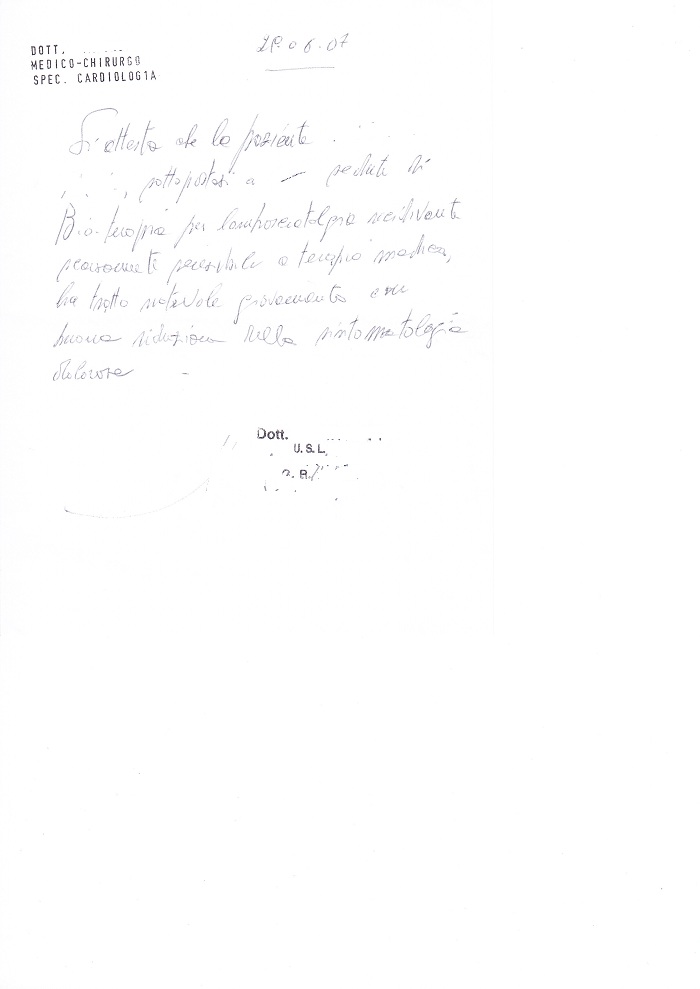 DOTT.
MEDICO-CHIRURGO
SPEC. CARDIOLOGIA
29.06.07
Si attesta che la paziente
, sottopostasi a — sedute di
Bio-terapia per lomposciatalgia recidivante
scarsamente sensibile a terapia medica,
ha tratto notevole giovamento con
buona riduzione della sintomatologia
dolorosa -
Dott.
U.S.L.